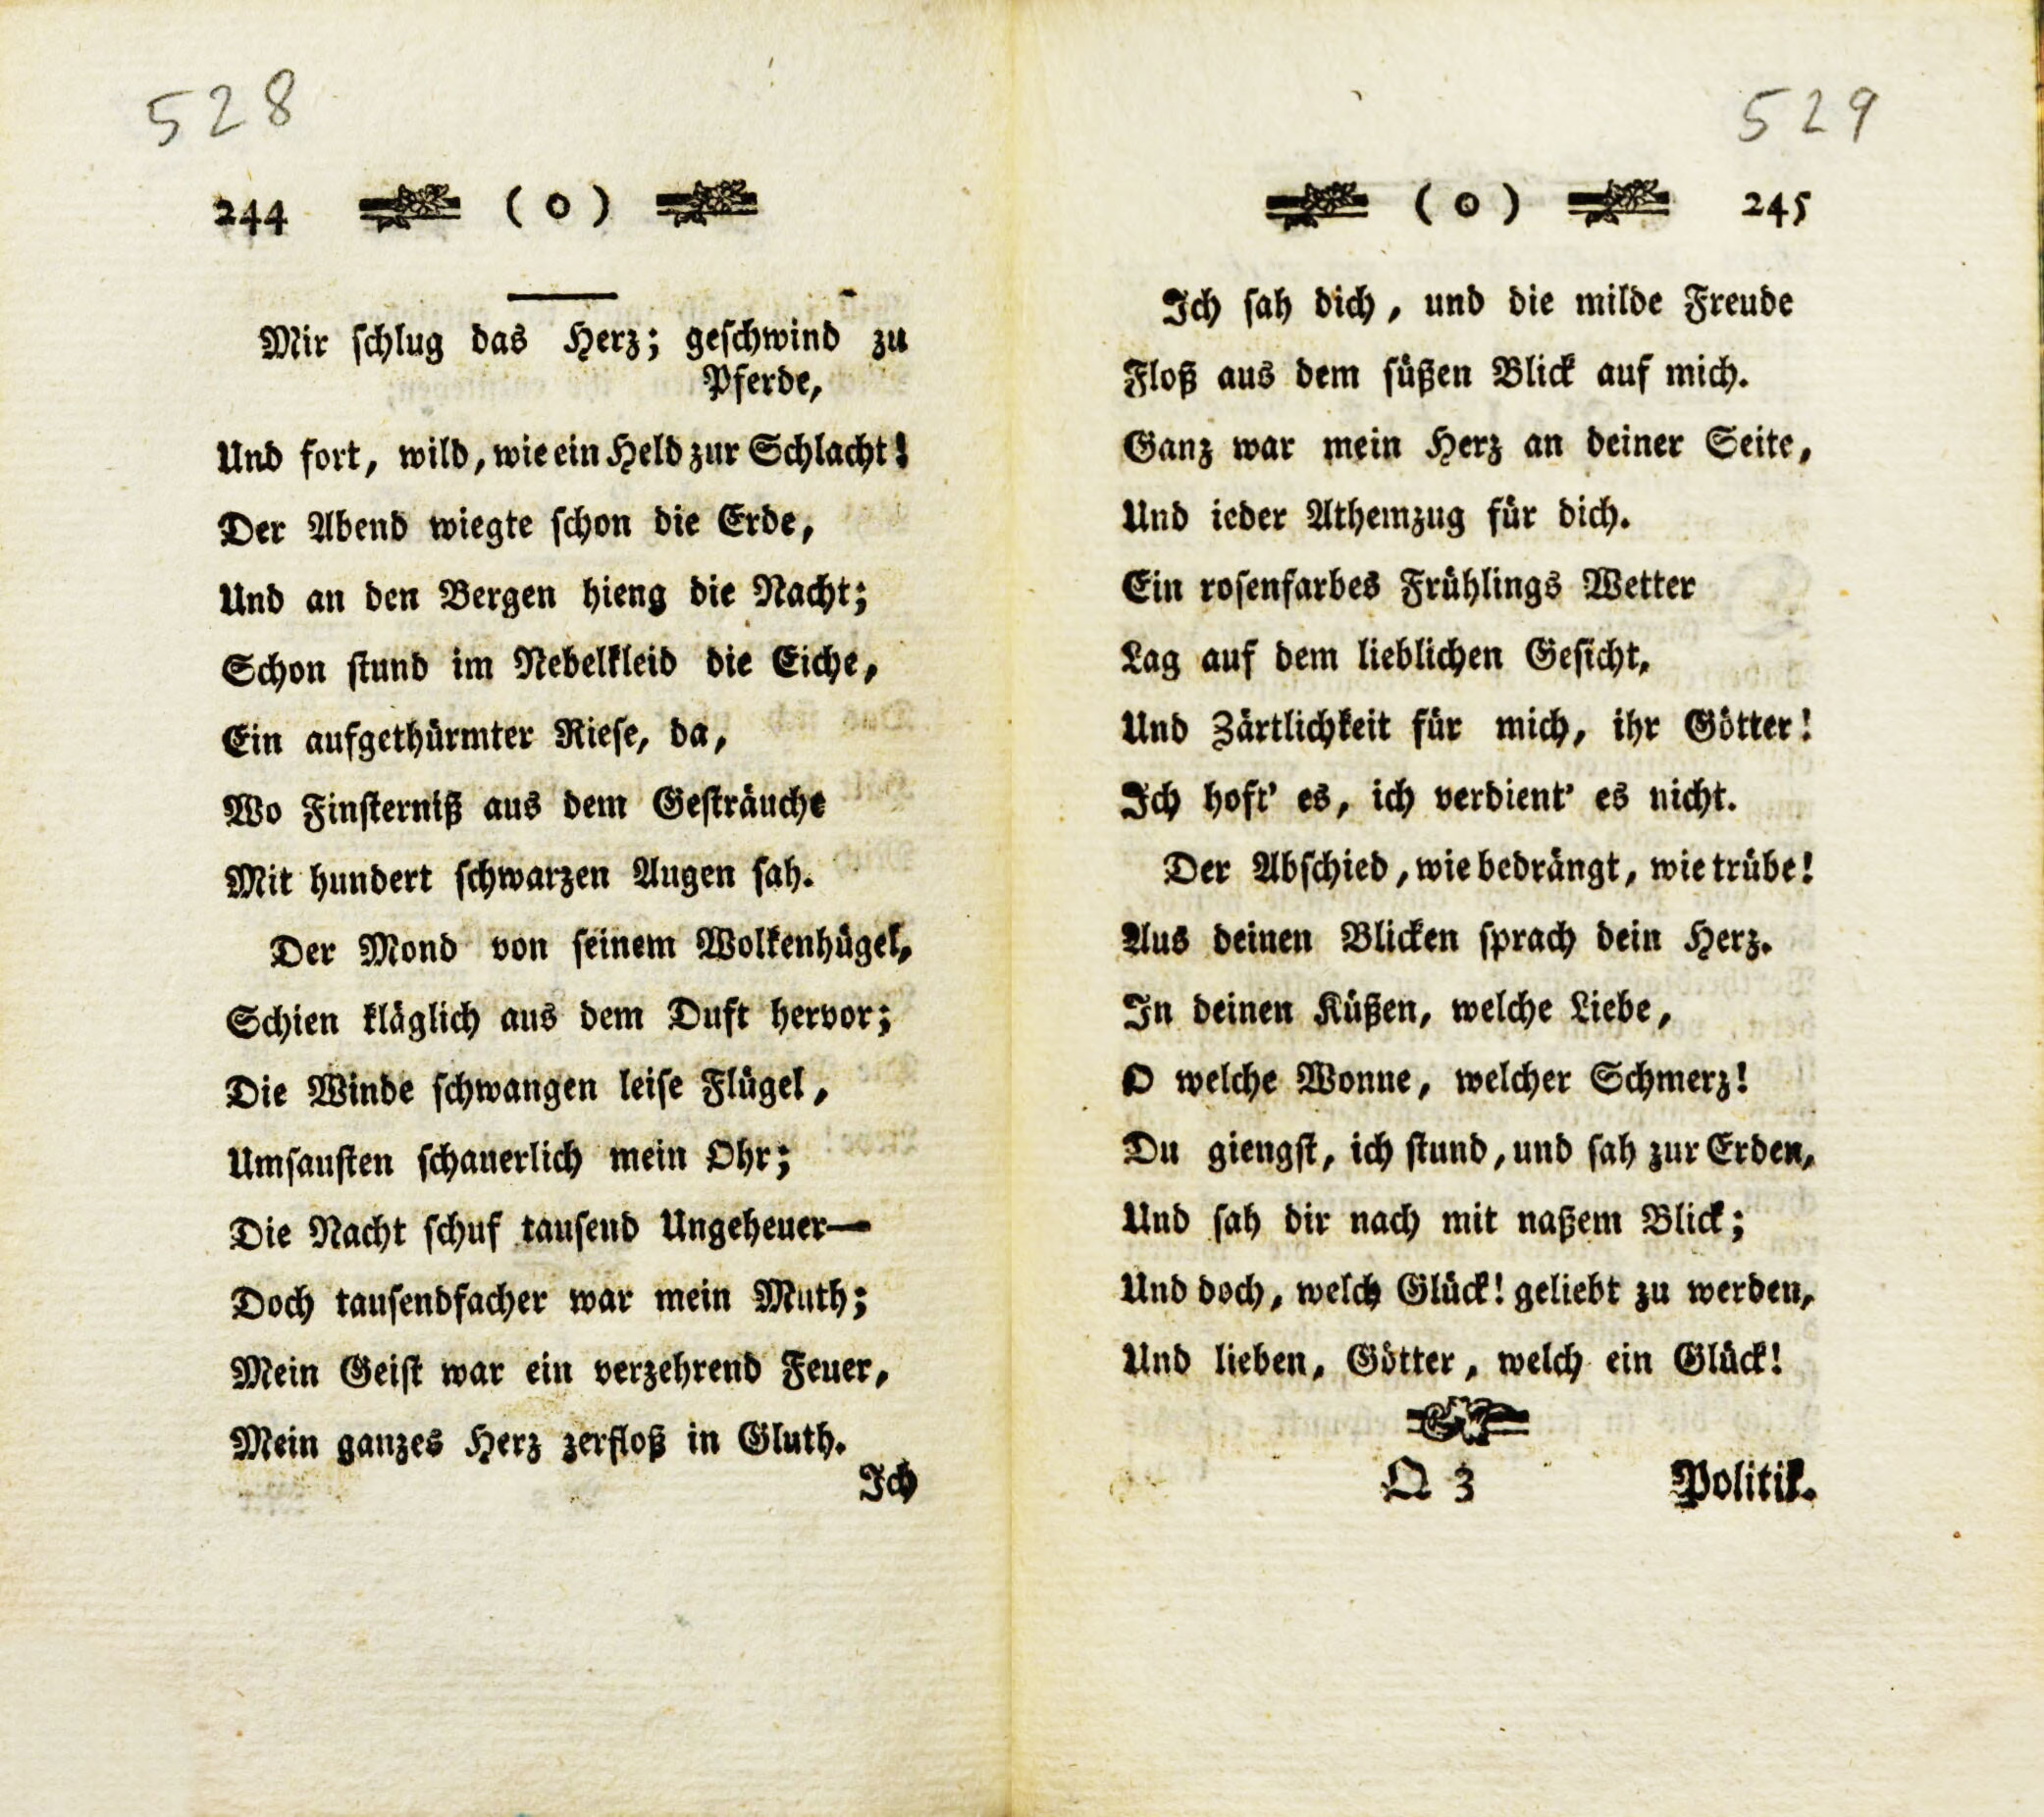 528
244 ( o )
Mir schlug das Herz; geschwind zu
Pferde,
Und fort, wild, wie ein Held zur Schlacht!
Der Abend wiegte schon die Erde,
Und an den Bergen hieng die Nacht;
Schon stund im Nebelkleid die Eiche,
Ein aufgethürmter Riese, da,
Wo Finsterniß aus dem Gesträuche
Mit hundert schwarzen Augen sah.
Der Mond von seinem Wolkenhügel,
Schien kläglich aus dem Duft hervor;
Die Winde schwangen leise Flügel,
Umsausten schauerlich mein Ohr;
Die Nacht schuf tausend Ungeheuer—
Doch tausendfacher war mein Muth;
Mein Geist war ein verzehrend Feuer,
Mein ganzes Herz zerfloß in Gluth.
Ich
529
( o ) 245
Ich sah dich, und die milde Freude
Floß aus dem süßen Blick auf mich.
Ganz war mein Herz an deiner Seite,
Und ieder Athemzug für dich.
Ein rosenfarbes Frühlings Wetter
Lag auf dem lieblichen Gesicht,
Und Zärtlichkeit für mich, ihr Götter!
Ich hoft' es, ich verdient' es nicht.
Der Abschied, wie bedrängt, wie trübe!
Aus deinen Blicken sprach dein Herz.
In deinen Küßen, welche Liebe,
O welche Wonne, welcher Schmerz!
Du giengst, ich stund, und sah zur Erden,
Und sah dir nach mit naßem Blick;
Und doch, welch Glück! geliebt zu werden,
Und lieben, Götter, welch ein Glück!
Q 3 Politik.